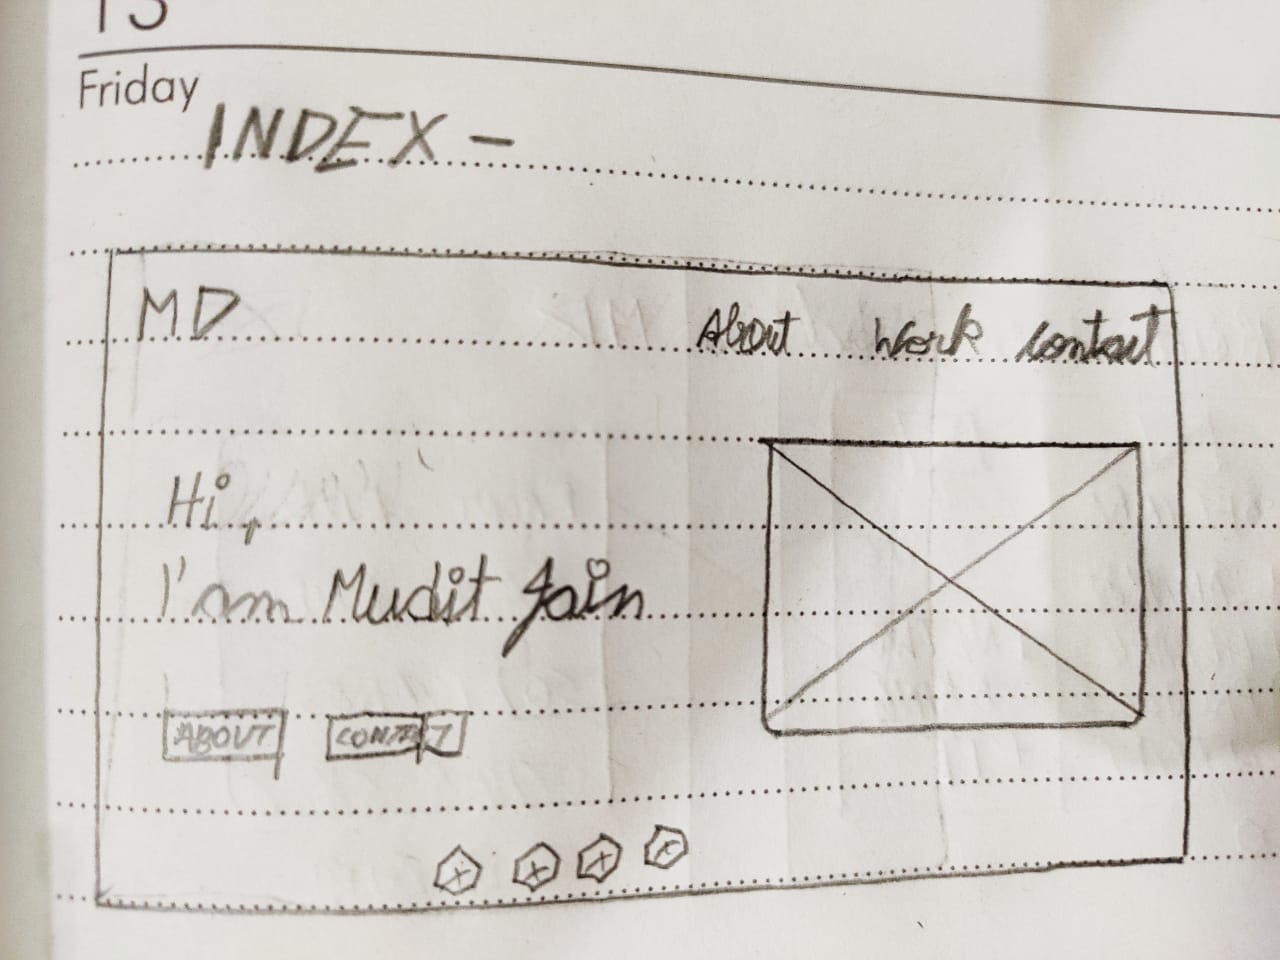 Friday
INDEX -
MD About Work Contact
Hi,
I'am Mudit Jain
ABOUT CONTACT